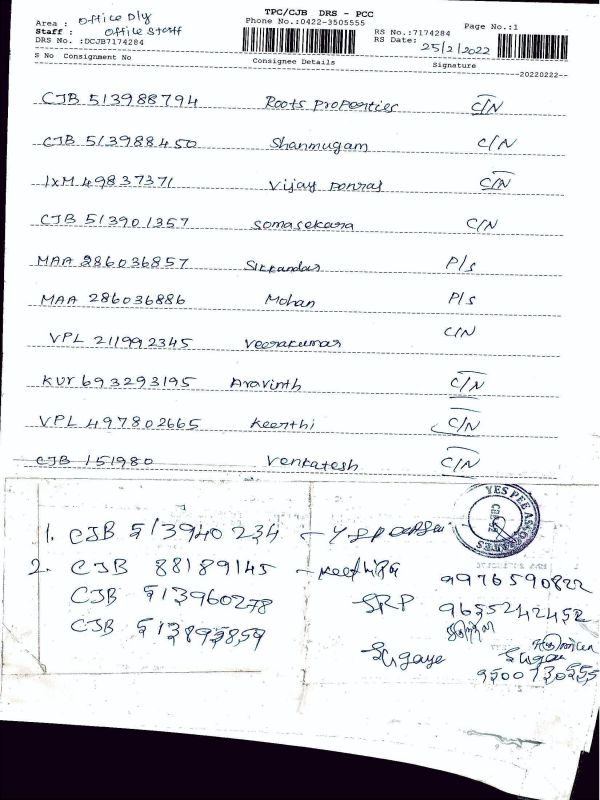 TPC/CJB DRS - PCC
Phone No.:0422-3505555
Page No.:1
Area : Office Dly
Staff : Office Staff
DRS No. :DCJB7174284
RS No.:7174284
RS Date: 25/2/2022
S No Consignment No Consignee Details Signature
20220222
CJB 513988794 Roots Properties C/N
CJB 513988450 Shanmugam C/N
IXM 49837371 Vijay C/N
CJB 513901357 Somasekara C/N
MAA 286036857 Sikkandar P/s
MAA 286036886 Mohan P/s
VPL 211992345 Veerakumar C/N
KUV 693293195 Aravinth C/N
VPL 497802665 Keerthi C/N
CJB 151980 Venkatesh C/N
YES PEE ASSOCIATES
1. CJB 513940234 -
2. CJB 88189145 - 9976590822
CJB 513960278 SRP 9655242452
CJB 513895859
Sugaye
9500730555